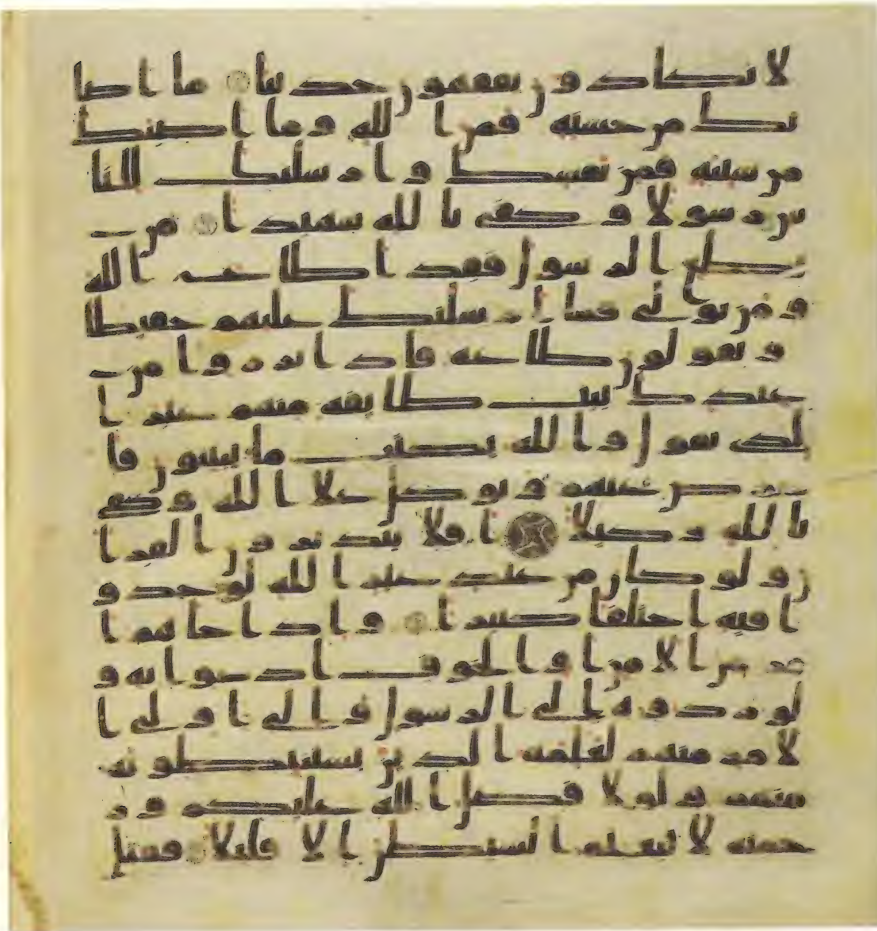 لا يكادون يفقهون حديثا ما اصا
بك من حسنه فمن الله وما اصبك
من سيئه فمن نفسك وارسلنك للنا
س رسولا وكفى بالله شهيدا من
يطع الرسول فقد اطاع الله
ومن تولى فما ارسلنك عليهم حفيظا
ويقولون طاعه فاذا برزوا من
عندك بيت طايفه منهم غير ا
لذى تقول والله يكتب ما يبيتون فا
عرض عنهم وتوكل على الله وكفى
بالله وكيلا افلا يتدبرون القرا
ن ولو كان من عند غير الله لوجدو
ا فيه اختلفا كثيرا واذا جاهم ا
مر من الامن او الخوف اذاعوا به و
لو ردوه الى الرسول والى اولى ا
لامر منهم لعلمه الذين يستنبطونه
منهم ولولا فضل الله عليكم ور
حمته لاتبعتم الشيطن الا قليلا فقتل